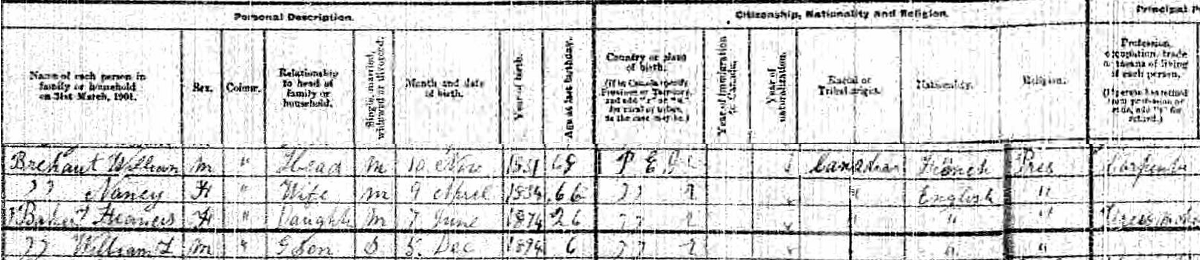 Personal Description. Citizenship, Nationality and Religion. Principal
Name of each person in family or household on 31st March, 1901. Sex. Colour. Relationship to head of family or household. Single, married, widowed or divorced. Month and date of birth. Year of birth. Age at last birthday. Country or place of birth. (If in Canada specify Province or Territory, and add "r" or "u" for rural or urban, as the case may be.) Year of immigration to Canada. Year of naturalization. Racial or Tribal origin. Nationality. Religion. Profession, occupation, trade or means of living of each person. (If person has retired from profession or trade, add "r" for retired.)
Brehaut William M " Head M 10 Nov 1831 69 P E I r Canadian French Pres Carpenter
" Nancy F " Wife M 9 April 1834 66 " r " English "
Baker Frances F " Daught M 7 June 1874 26 " r " " "
" William M " G Son S 5 Dec 1894 6 " r " " "